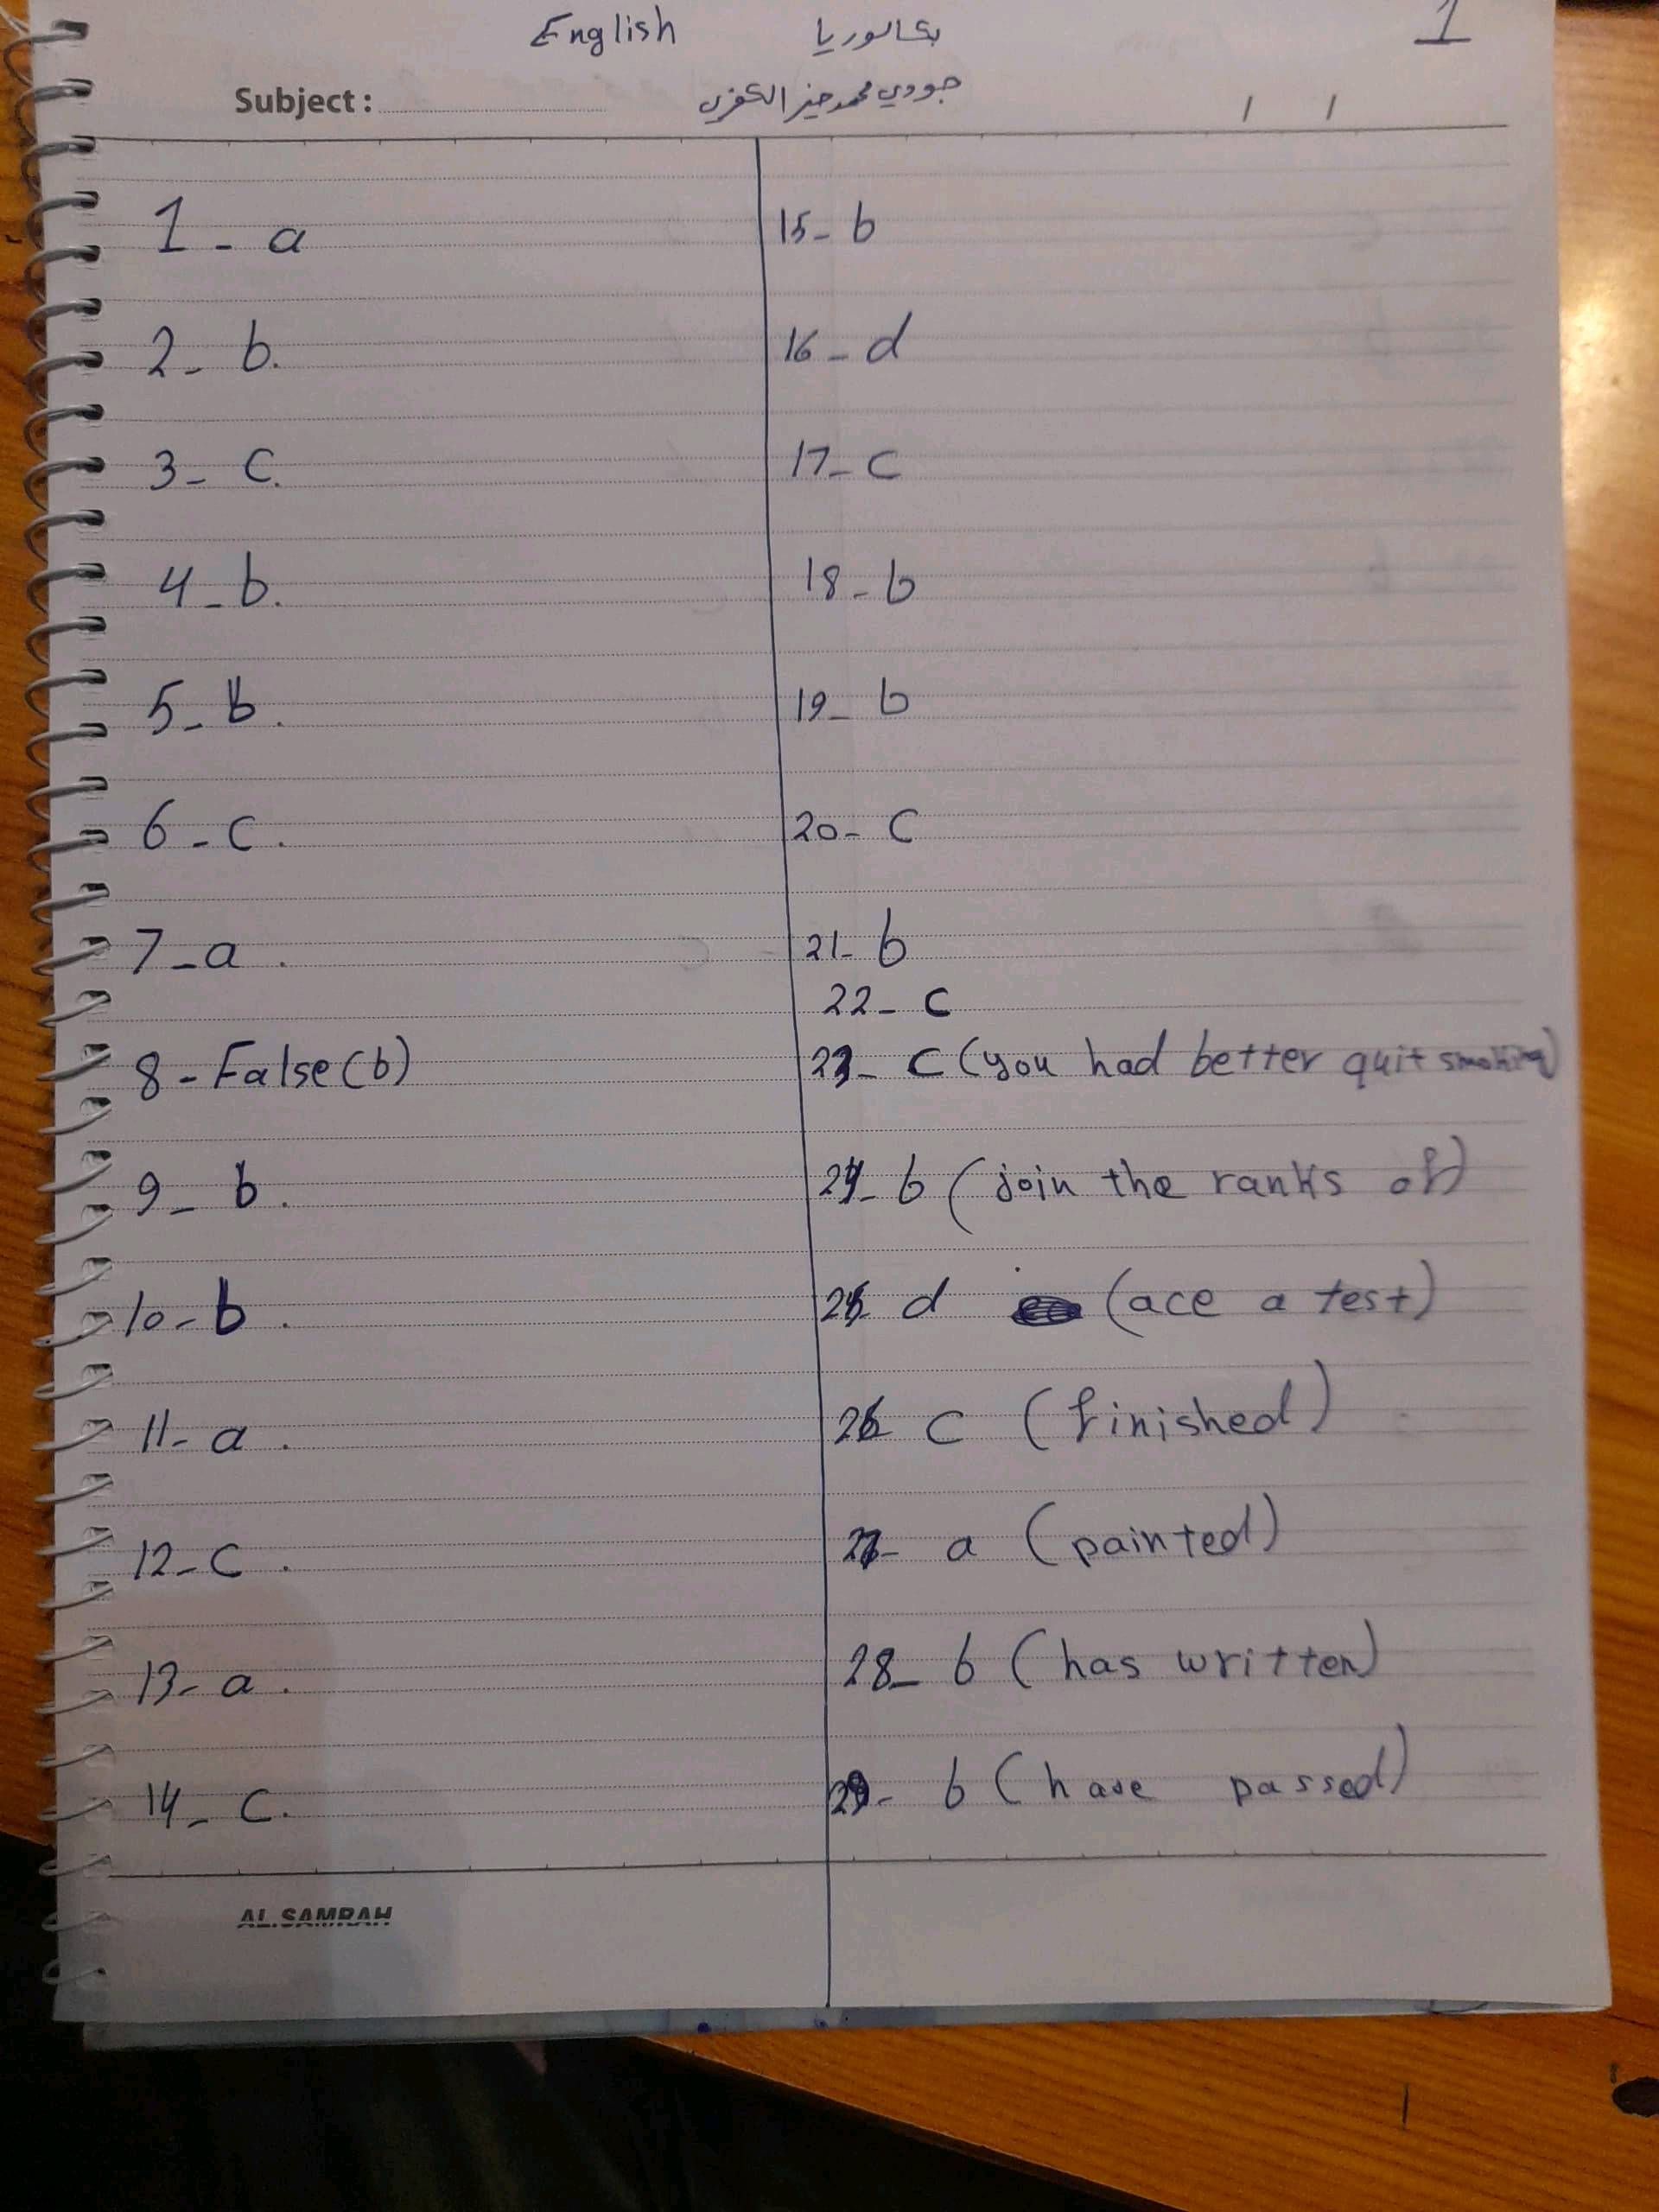 English بكالوريا 1
Subject: جودي محمد خير الكفري / /
1 - a
2 - b.
3 - c.
4 - b.
5 - b.
6 - c.
7 - a.
8 - False (b)
9 - b.
10 - b.
11 - a.
12 - c.
13 - a.
14 - c.
15 - b
16 - d
17 - c
18 - b
19 - b
20 - c
21 - b
22 - c
23 - c (you had better quit smoking)
24 - b (join the ranks of)
25 - d (ace a test)
26 c (finished)
27 - a (painted)
28 - b (has written)
29 - b (have passed)
AL.SAMRAH